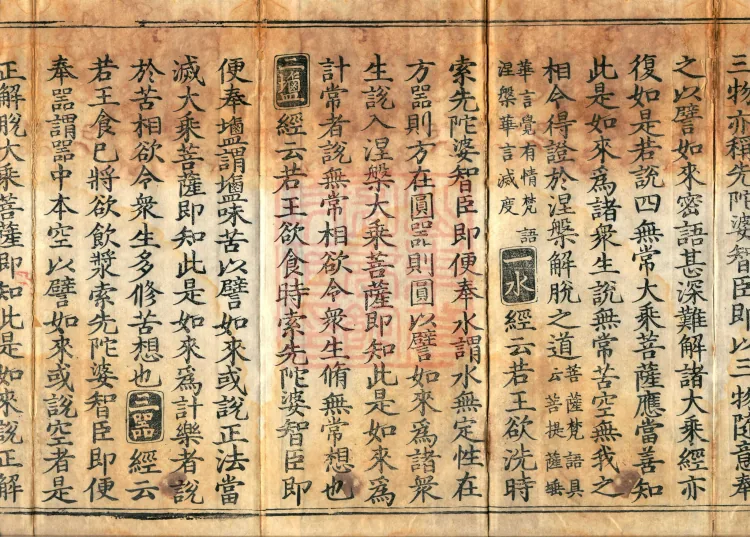 三物亦稱先陀婆智臣即以三物隨意奉
之以譬如來密語甚深難解諸大乘經亦
復如是若說四無常大乘菩薩應當善知
此是如來為諸衆生說無常苦空無我之
相令得證於涅槃解脫之道菩薩梵語具云菩提薩埵
華言覺有情梵語涅槃華言滅度
一水 經云若王欲洗時
索先陀婆智臣即便奉水謂水無定性在
方器則方在圓器則圓以譬如來為諸衆
生說入涅槃大乘菩薩即知此是如來為
計常者說無常相欲令衆生脩無常想也
二鹽 經云若王欲食時索先陀婆智臣即
便奉鹽謂鹽味苦以譬如來或說正法當
滅大乘菩薩即知此是如來為計樂者說
於苦相欲令衆生多修苦想也 三器 經云
若王食已將欲飲漿索先陀婆智臣即便
奉器謂器中本空以譬如來或說空者是
正解脫大乘菩薩即知此是如來說正解